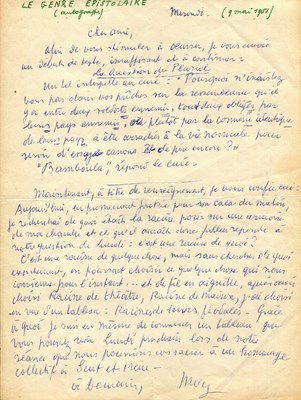 LE GENRE EPISTOLAIRE
(autographe) Mercredi. (9 mai 1951)
Cher ami,
afin de vous stimuler à œuvrer, je vous envoie
un début de texte, insuffisant et à continuer :
La Question du Pluriel
Un tel interpelle un curé : - "Pourquoi n'insistez
vous pas dans vos prêches sur la ressemblance qu'il
y a entre deux soldats ennemis, tout deux obligés par
leurs pays ennemis, ou plutôt par la connerie identique
de leurs pays a été arrachés à la vie normale pour
servir d' canons et de pis encore ? "
"Bamboula", répond le curé -
Maintenant, à titre de renseignement, je vous confie ceci :
Aujourd'hui, en promenant pour son caca du matin,
je recherchai de quoi était la racine posée sur une armoire
de ma chambre et ce qu'il aurait donc fallu répondre à
votre question de lundi : c'est une racine de quoi ?
C'est une racine de quelque chose, mais sans chercher de quoi
exactement, on pouvait choisir quelque chose qui nous
convienne pour l'instant --- et de fil en aiguille, après avoir
choisi Racine de théâtre, Racine de maison, j'ai choisi
en vue d'un tableau : Racines de tours féodales - Grâce
à quoi je suis en mesure de commencer un tableau que
vous pourrez voir lundi prochain lors de notre
séance que nous pourrions consacrer à un hommage
collectif à Scut et Irène -
à demain, Mag